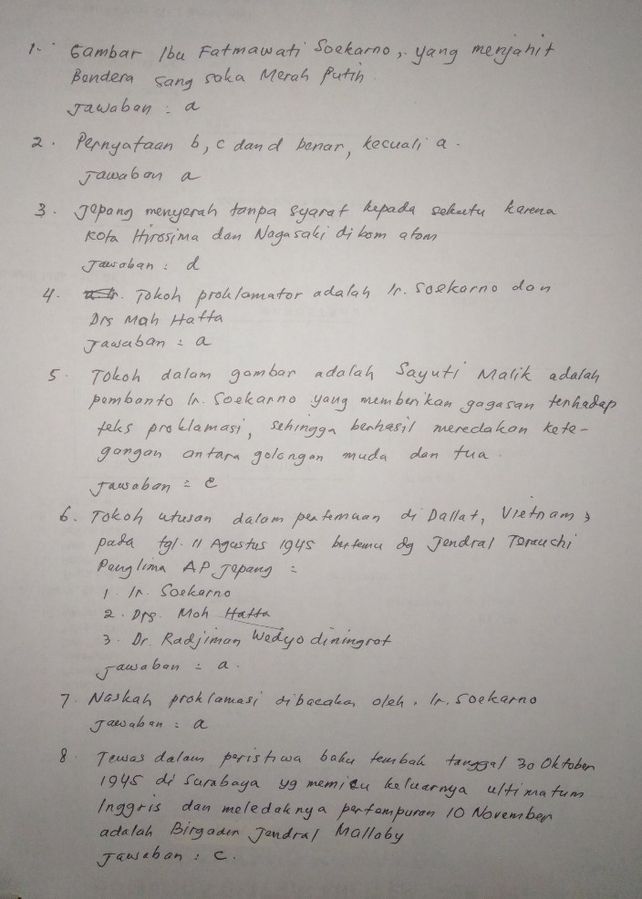 1. Gambar Ibu Fatmawati Soekarno, yang menjahit
Bendera sang saka Merah Putih.
Jawaban : a
2. Pernyataan b, c dan d benar, kecuali a.
Jawaban a
3. Jepang menyerah tanpa syarat kepada sekutu karena
kota Hirosima dan Nagasaki di bom atom
Jawaban : d
4. Tokoh proklamator adalah Ir. Soekarno dan
Drs Moh Hatta
Jawaban : a
5. Tokoh dalam gambar adalah Sayuti Malik adalah
pembantu Ir. Soekarno yang memberikan gagasan terhadap
teks proklamasi, sehingga berhasil meredakan kete-
gangan antara golongan muda dan tua.
Jawaban : e
6. Tokoh utusan dalam pertemuan di Dallat, Vietnam
pada tgl. 11 Agustus 1945 bertemu dg Jendral Terauchi
Panglima AP Jepang :
1. Ir. Soekarno
2. Drs. Moh Hatta
3. Dr. Radjiman Wedyodiningrat
Jawaban : a.
7. Naskah proklamasi dibacakan oleh. Ir. Soekarno
Jawaban : a
8. Tewas dalam peristiwa baku tembak tanggal 30 Oktober
1945 di Surabaya yg memicu keluarnya ultimatum
Inggris dan meledaknya pertempuran 10 November
adalah Birgadir Jendral Malloby
Jawaban : c.